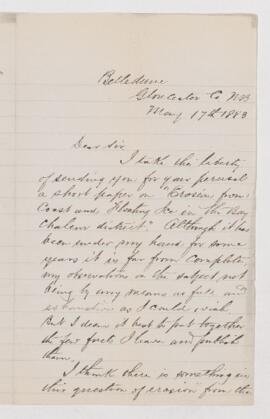 Belledune
Gloucester Co NB
May 17th 1883
Dear Sir
I take the liberty
of sending you for your perusal
a short paper on "Erosion from
Coast and Floating Ice in the Bay
Chaleur district". Although it has
been under my hand for some
years it is far from complete
my observations on the subject not
being by any means as full and
exhaustive as I could wish.
But I deem it best to put together
the few facts I have and publish
them,
I think there is something in
this question of erosion from the